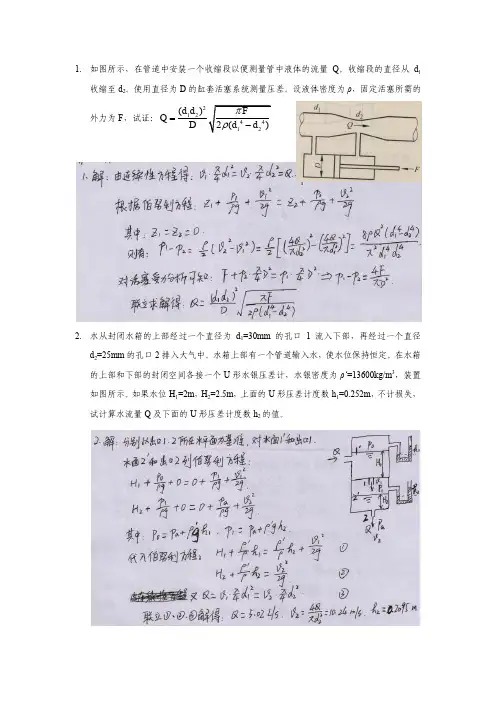 1. 如图所示、在管道中安装一个收缩段以便测量管中液体的流量 Q。收缩段的直径从 d₁
收缩至 d₂。使用直径为 D 的缸套活塞系统测量压差。设液体密度为 ρ，固定活塞所需的
外力为 F，试证：Q = (d₁d₂)²/D √(πF/2ρ(d₁⁴−d₂⁴))
d₁ d₂
Q
D
F
1.解：由连续性方程得：υ₁·π/4 d₁² = υ₂·π/4 d₂² = Q.
根据伯努利方程：z₁ + P₁/ρg + υ₁²/2g = z₂ + P₂/ρg + υ₂²/2g
其中：z₁ = z₂ = 0.
则有：P₁−P₂ = ρ/2 (υ₂²−υ₁²) = ρ/2 [(4Q/πd₂²)² − (4Q/πd₁²)²] = 8ρQ²(d₁⁴−d₂⁴)/π²d₁⁴d₂⁴
对活塞受力分析可知：F + P₂·π/4 D² = P₁·π/4 D² ⇒ P₁−P₂ = 4F/πD².
联立求解得：Q = (d₁d₂)²/D √(πF/2ρ(d₁⁴−d₂⁴))
2. 水从封闭水箱的上部经过一个直径为 d₁=30mm 的孔口 1 流入下部，再经过一个直径
d₂=25mm 的孔口 2 排入大气中。水箱上部有一个管道输入水，使水位保持恒定。在水箱
的上部和下部的封闭空间各接一个 U 形水银压差计，水银密度为 ρ'=13600kg/m³，装置
如图所示。如果水位 H₁=2m，H₂=2.5m，上面的 U 形压差计度数 h₁=0.252m，不计损失，
试计算水流量 Q 及下面的 U 形压差计度数 h₂ 的值。
2.解：分别以出口1.2所在水平面为基准，对水面1'和出口1.
水面2'和出口2列伯努利方程：
H₁ + P₀/ρg + 0 = 0 + P₁/ρg + υ₁²/2g
H₂ + P₁/ρg + 0 = 0 + Pa/ρg + υ₂²/2g
其中：P₀ = Pa + ρ'gh₁，P₁ = Pa + ρ'gh₂.
代入伯努利方程：H₁ + ρ'/ρ h₁ = ρ'/ρ h₂ + υ₁²/2g ①
H₂ + ρ'/ρ h₂ = υ₂²/2g ②
又 Q = υ₁·π/4 d₁² = υ₂·π/4 d₂² ③
联立①、②、③解得：Q = 5.02 L/s. υ₂ = 4Q/πd₂² = 10.24 m/s. h₂ = 0.2095 m